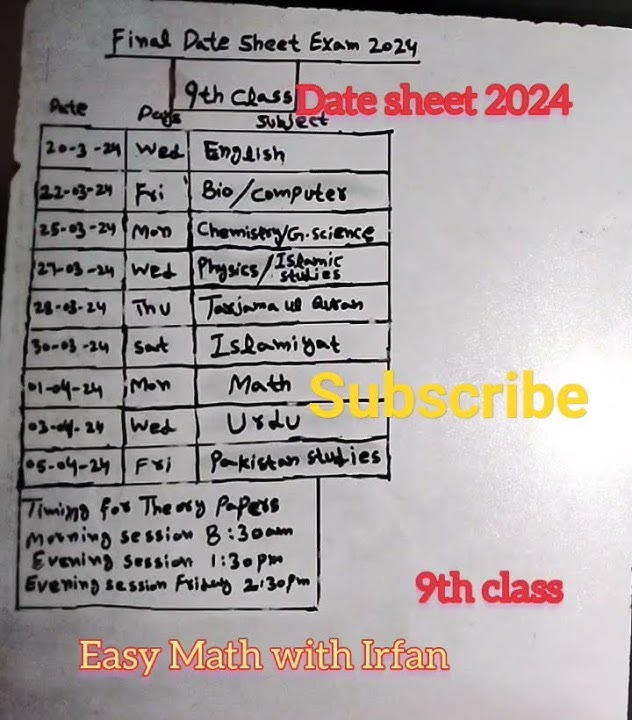 Final Date Sheet Exam 2024
9th Class
Date sheet 2024
Date Days Subject
20-3-24 Wed English
22-03-24 Fri Bio/computer
25-03-24 Mon Chemistry/G.science
27-03-24 Wed Physics/Islamic studies
28-03-24 Thu Tarjama ul Quran
30-03-24 Sat Islamiyat
01-04-24 Mon Math
Subscribe
03-04-24 Wed Urdu
05-04-24 Fri Pakistan studies
Timing for Theory Papers
Morning session 8:30am
Evening session 1:30pm
Evening session Friday 2:30pm
9th class
Easy Math with Irfan